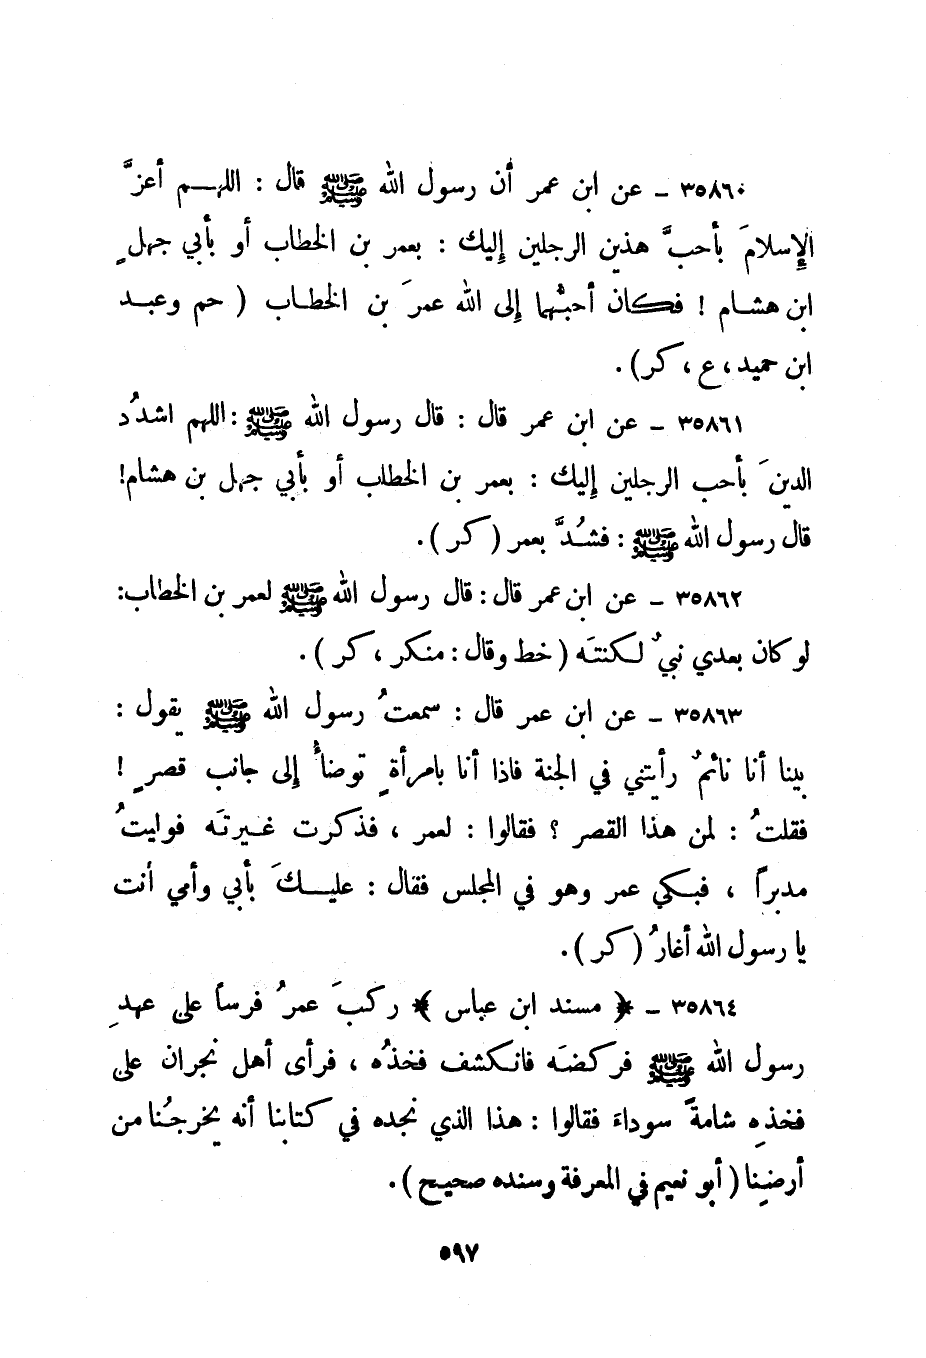 ٣٥٨٦٠ ـ عن ابن عمر أن رسول الله ﷺ قال : اللهـم أعزَّ
الإِسلامَ بأحبَّ هذين الرجلين إليك : بعمر بن الخطاب أو بأبي جهلٍ
ابن هشـام ! فكان أحبُّهما إلى الله عمرَ بن الخطـاب ( حم وعبـد
ابن حميد ، ع ، كر ) .
٣٥٨٦١ ـ عن ابن عمر قال : قال رسول الله ﷺ : اللهم اشدُد
الدينَ بأحب الرجلين إليك : بعمر بن الخطاب أو بأبي جهل بن هشام!
قال رسول الله ﷺ : فشُدَّ بعمر ( كر ) .
٣٥٨٦٢ ـ عن ابن عمر قال : قال رسول الله ﷺ لعمر بن الخطاب:
لو كان بعدي نبيٌ لكنتَه ( خط وقال : منكر ، كر ) .
٣٥٨٦٣ ـ عن ابن عمر قال : سمعتُ رسول الله ﷺ يقول :
بينا أنا نائمٌ رأيتني في الجنة فاذا أنا بامرأةٍ توضأُ إلى جانب قصرٍ !
فقلتُ : لمن هذا القصر ؟ فقالوا : لعمر ، فذكرت غيرتَه فوليتُ
مدبراً ، فبكى عمر وهو في المجلس فقال : عليـكَ بأبي وأمي أنت
يا رسول الله أغارُ ( كر ) .
٣٥٨٦٤ ـ ﴿ مسند ابن عباس ﴾ ركبَ عمرُ فرساً على عهدِ
رسول الله ﷺ فركضَه فانكشف فخذُه ، فرأى أهل نجران على
فخذِه شامةً سوداءَ فقالوا : هذا الذي نجده في كتابنا أنه يخرجُنا من
أرضِنا ( أبو نعيم في المعرفة وسنده صحيح ) .
٥٩٧